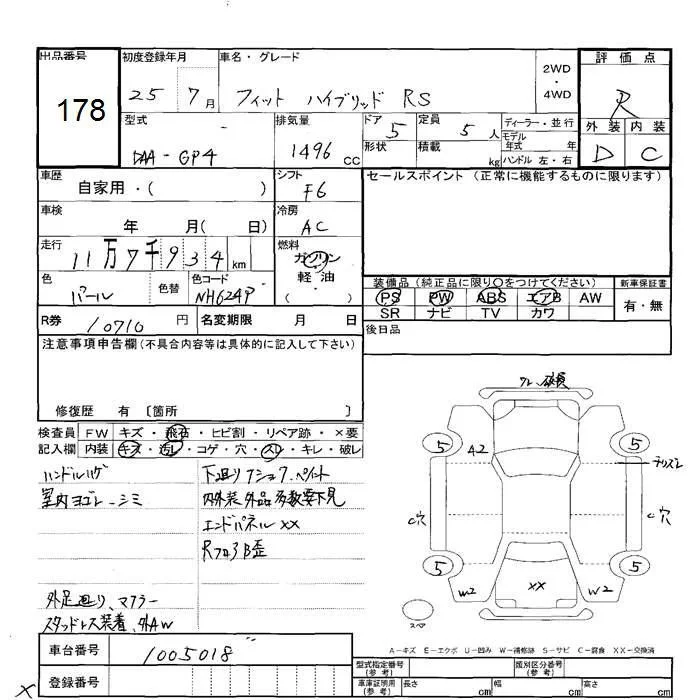 出品番号
178
初度登録年月
25 7月
車名・グレード
フィット ハイブリッド RS
2WD
・
4WD
評価点
R
外装 内装
D C
型式
DAA-GP4
排気量
1496 cc
ドア 5
形状
定員 5 人
積載 kg
ディーラー・並行
モデル
年式 年
ハンドル 左・右
車歴
自家用・( )
シフト
F6
セールスポイント (正常に機能するものに限ります)
車検
年 月( 日)
冷房
AC
走行
11万7千934 km
燃料
ガソリン
軽油
( ・ )
色
パール
色替
色コード
NH624P
装備品 (純正品に限り○をつけてください)
新車保証書
PS PW ABS エアB AW
有・無
SR ナビ TV カワ
R券 10710 円
名変期限 月 日
後日品
注意事項申告欄(不具合内容等は具体的に記入して下さい)
修復歴 有 〔箇所 〕
検査員 FW キズ・飛石・ヒビ割・リペア跡・×要
記入欄 内装 キズ・汚レ・コゲ・穴・スレ・キレ・破レ
ハンドルハゲ
室内ヨゴレ-シミ
下廻り
ペイント
内外装 外品多数要下見
エンドパネルXX
Rフロア B歪
外足廻り、マフラー
スタッドレス装着、外AW
フレ 破損
A2
5
5
チリズレ
C穴
C穴
5
5
W2
XX
W2
スペア
A-キズ E-エクボ U-凹み W-補修跡 S-サビ C-腐食 XX-交換済
車台番号
1005018
登録番号
型式指定番号
(参考)
類別区分番号
(参考)
車庫証明用
(参考)
長さ cm
幅 cm
高さ cm